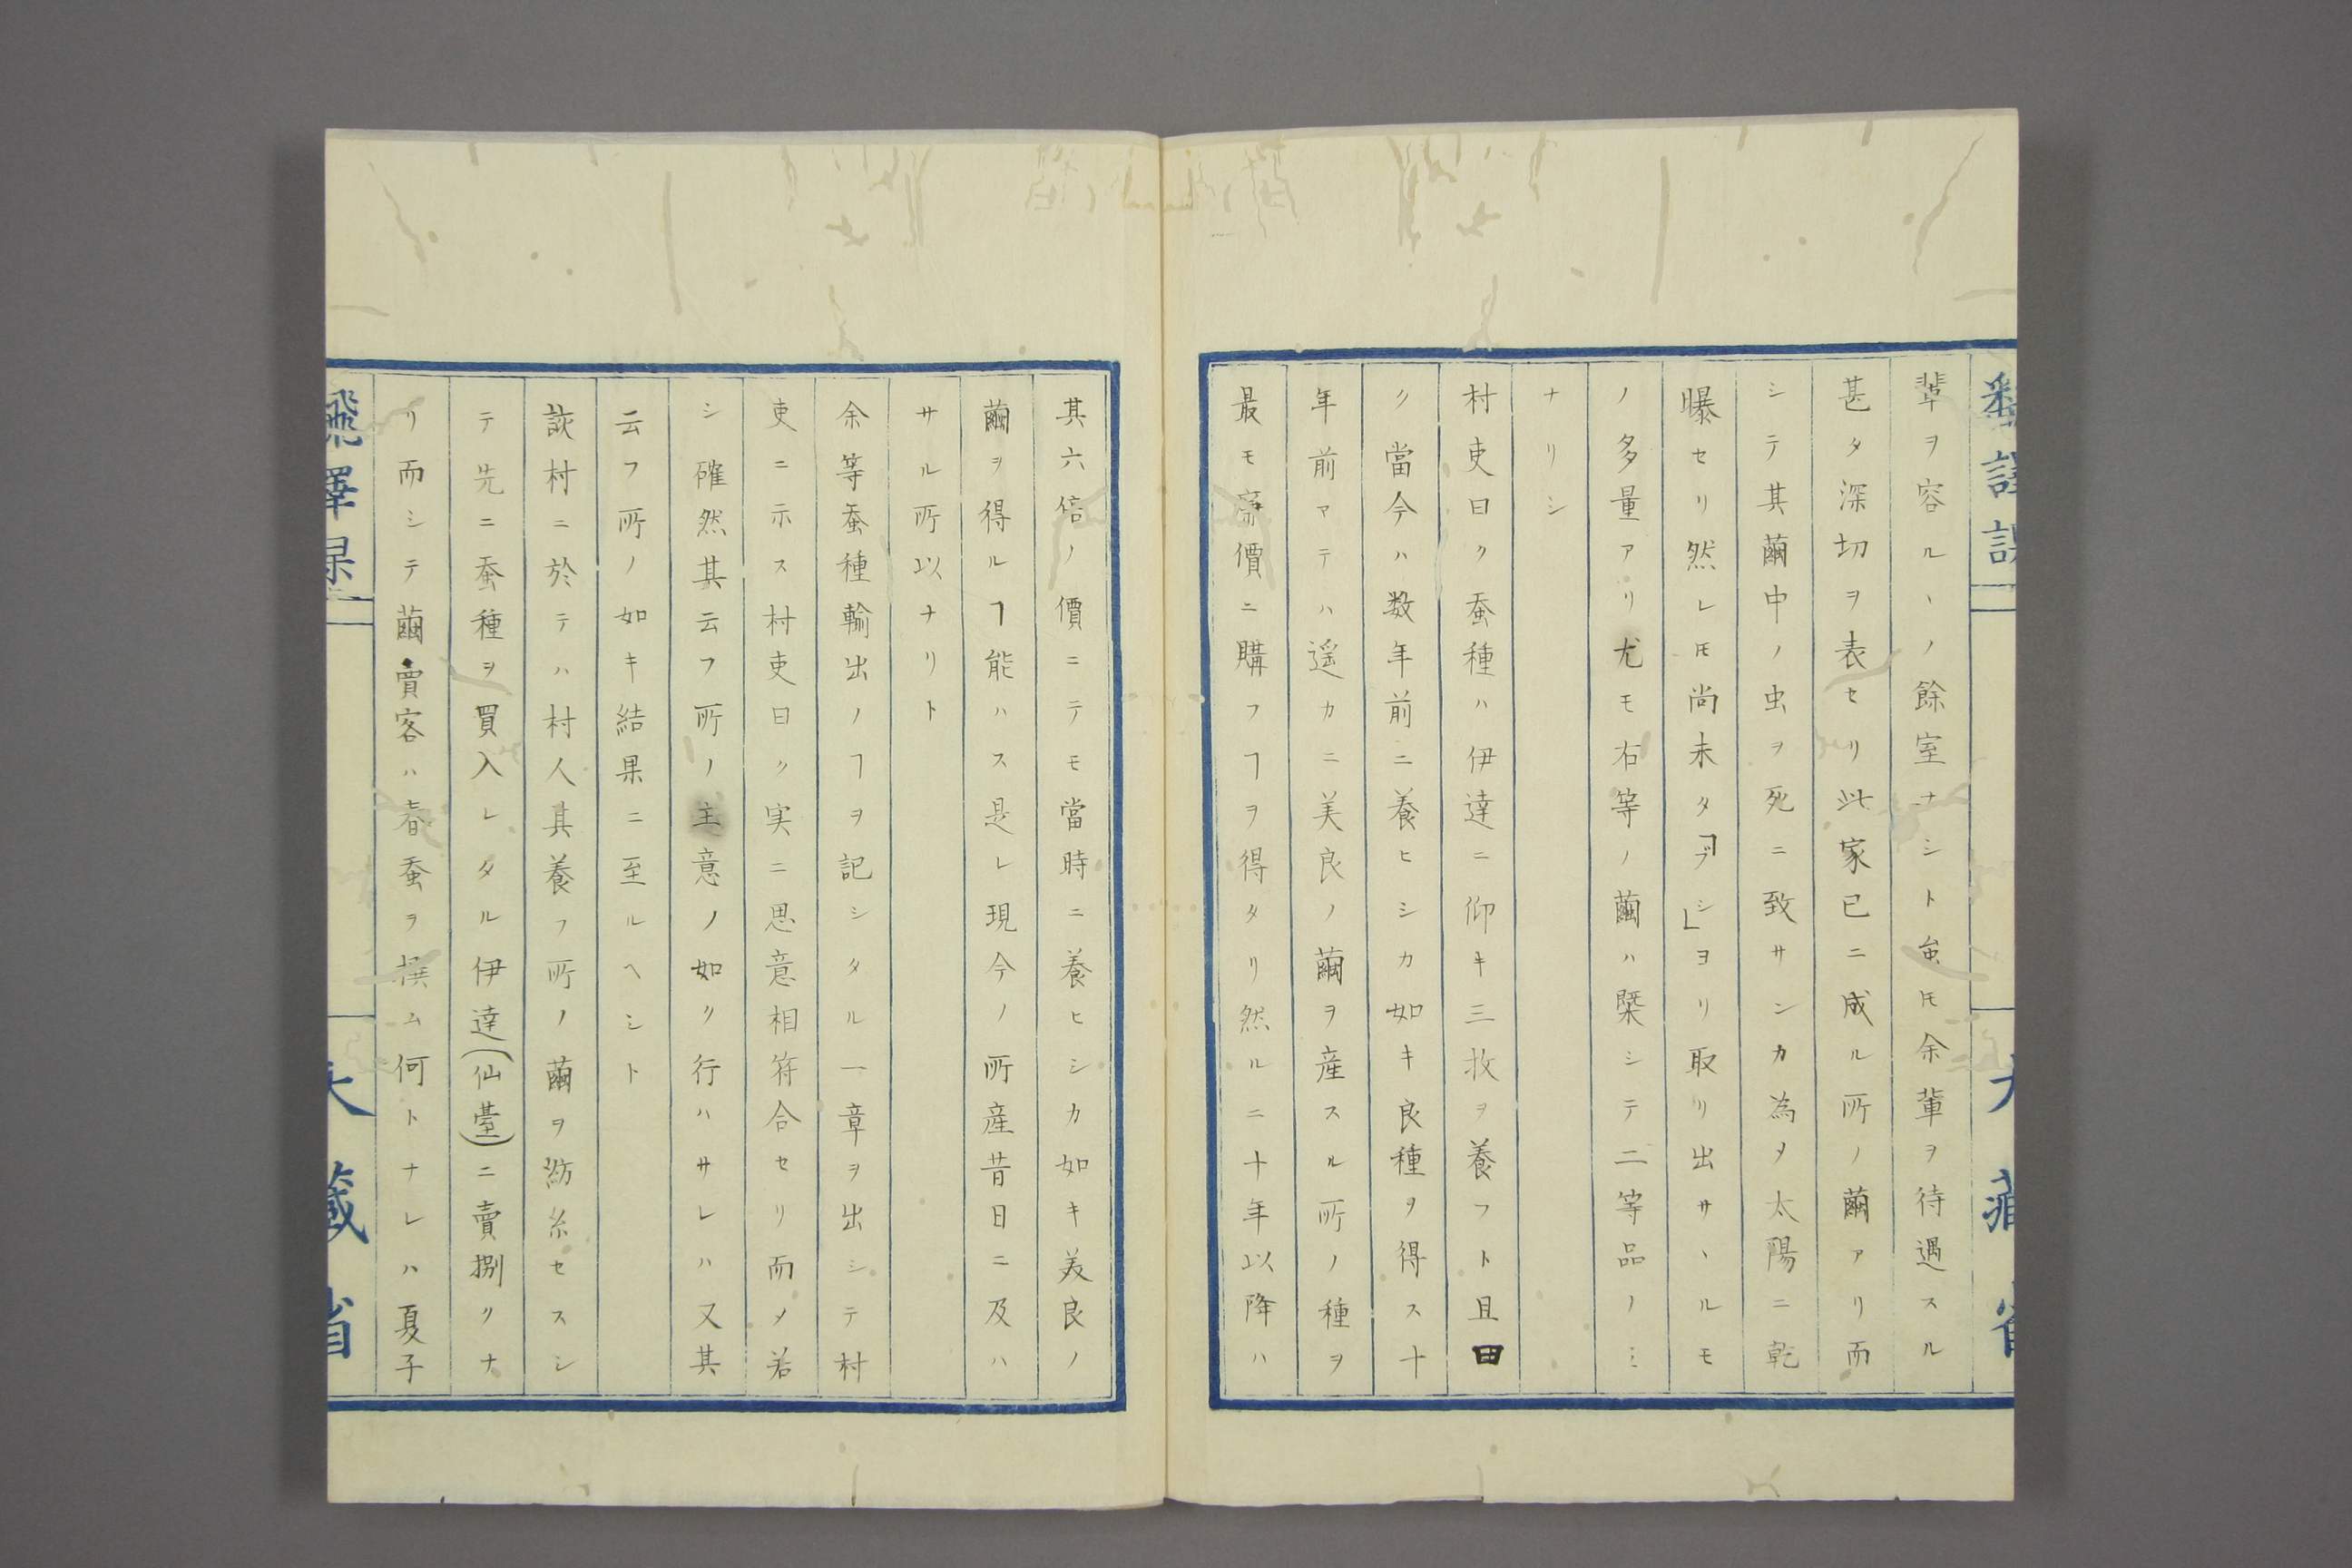 輩ヲ容ルヽノ餘室ナシト𧈧𪜈余輩ヲ待遇スル
甚タ深切ヲ表セリ此家已ニ咸ル所ノ繭アリ而
シテ其繭中ノ虫ヲ死ニ致サンカ為メ太陽ニ乾
曝セリ然レ𪜈尚未タ「ブシ」ヨリ取リ出サヽルモ
ノ多量アリ尤モ右等ノ繭ハ槩シテ二等品ノミ
ナリシ
村吏曰ク蚕種ハ伊達ニ仰キ三枚ヲ養フト且曰
ク當今ハ数年前ニ養ヒシカ如キ良種ヲ得ス十
年前マテハ遥カニ美良ノ繭ヲ産スル所ノ種ヲ
最モ廉價ニ購フヿヲ得タリ然ルニ十年以降ハ
其六倍ノ價ニテモ當時ニ養ヒシカ如キ美良ノ
繭ヲ得ルヿ能ハス是レ現今ノ所産昔日ニ及ハ
サル所以ナリト
余等蚕種輸出ノヿヲ記シタル一章ヲ出シテ村
吏ニ示ス村吏曰ク実ニ思意相符合セリ而メ若
シ確然其云フ所ノ主意ノ如ク行ハサレハ又其
云フ所ノ如キ結果ニ至ルヘシト
該村ニ於テハ村人其養フ所ノ繭ヲ紡糸セスシ
テ先ニ蚕種ヲ買入レタル伊達(仙臺)ニ賣捌クナ
リ而シテ繭賣客ハ春蚕ヲ撰ム何トナレハ夏子
大藏省